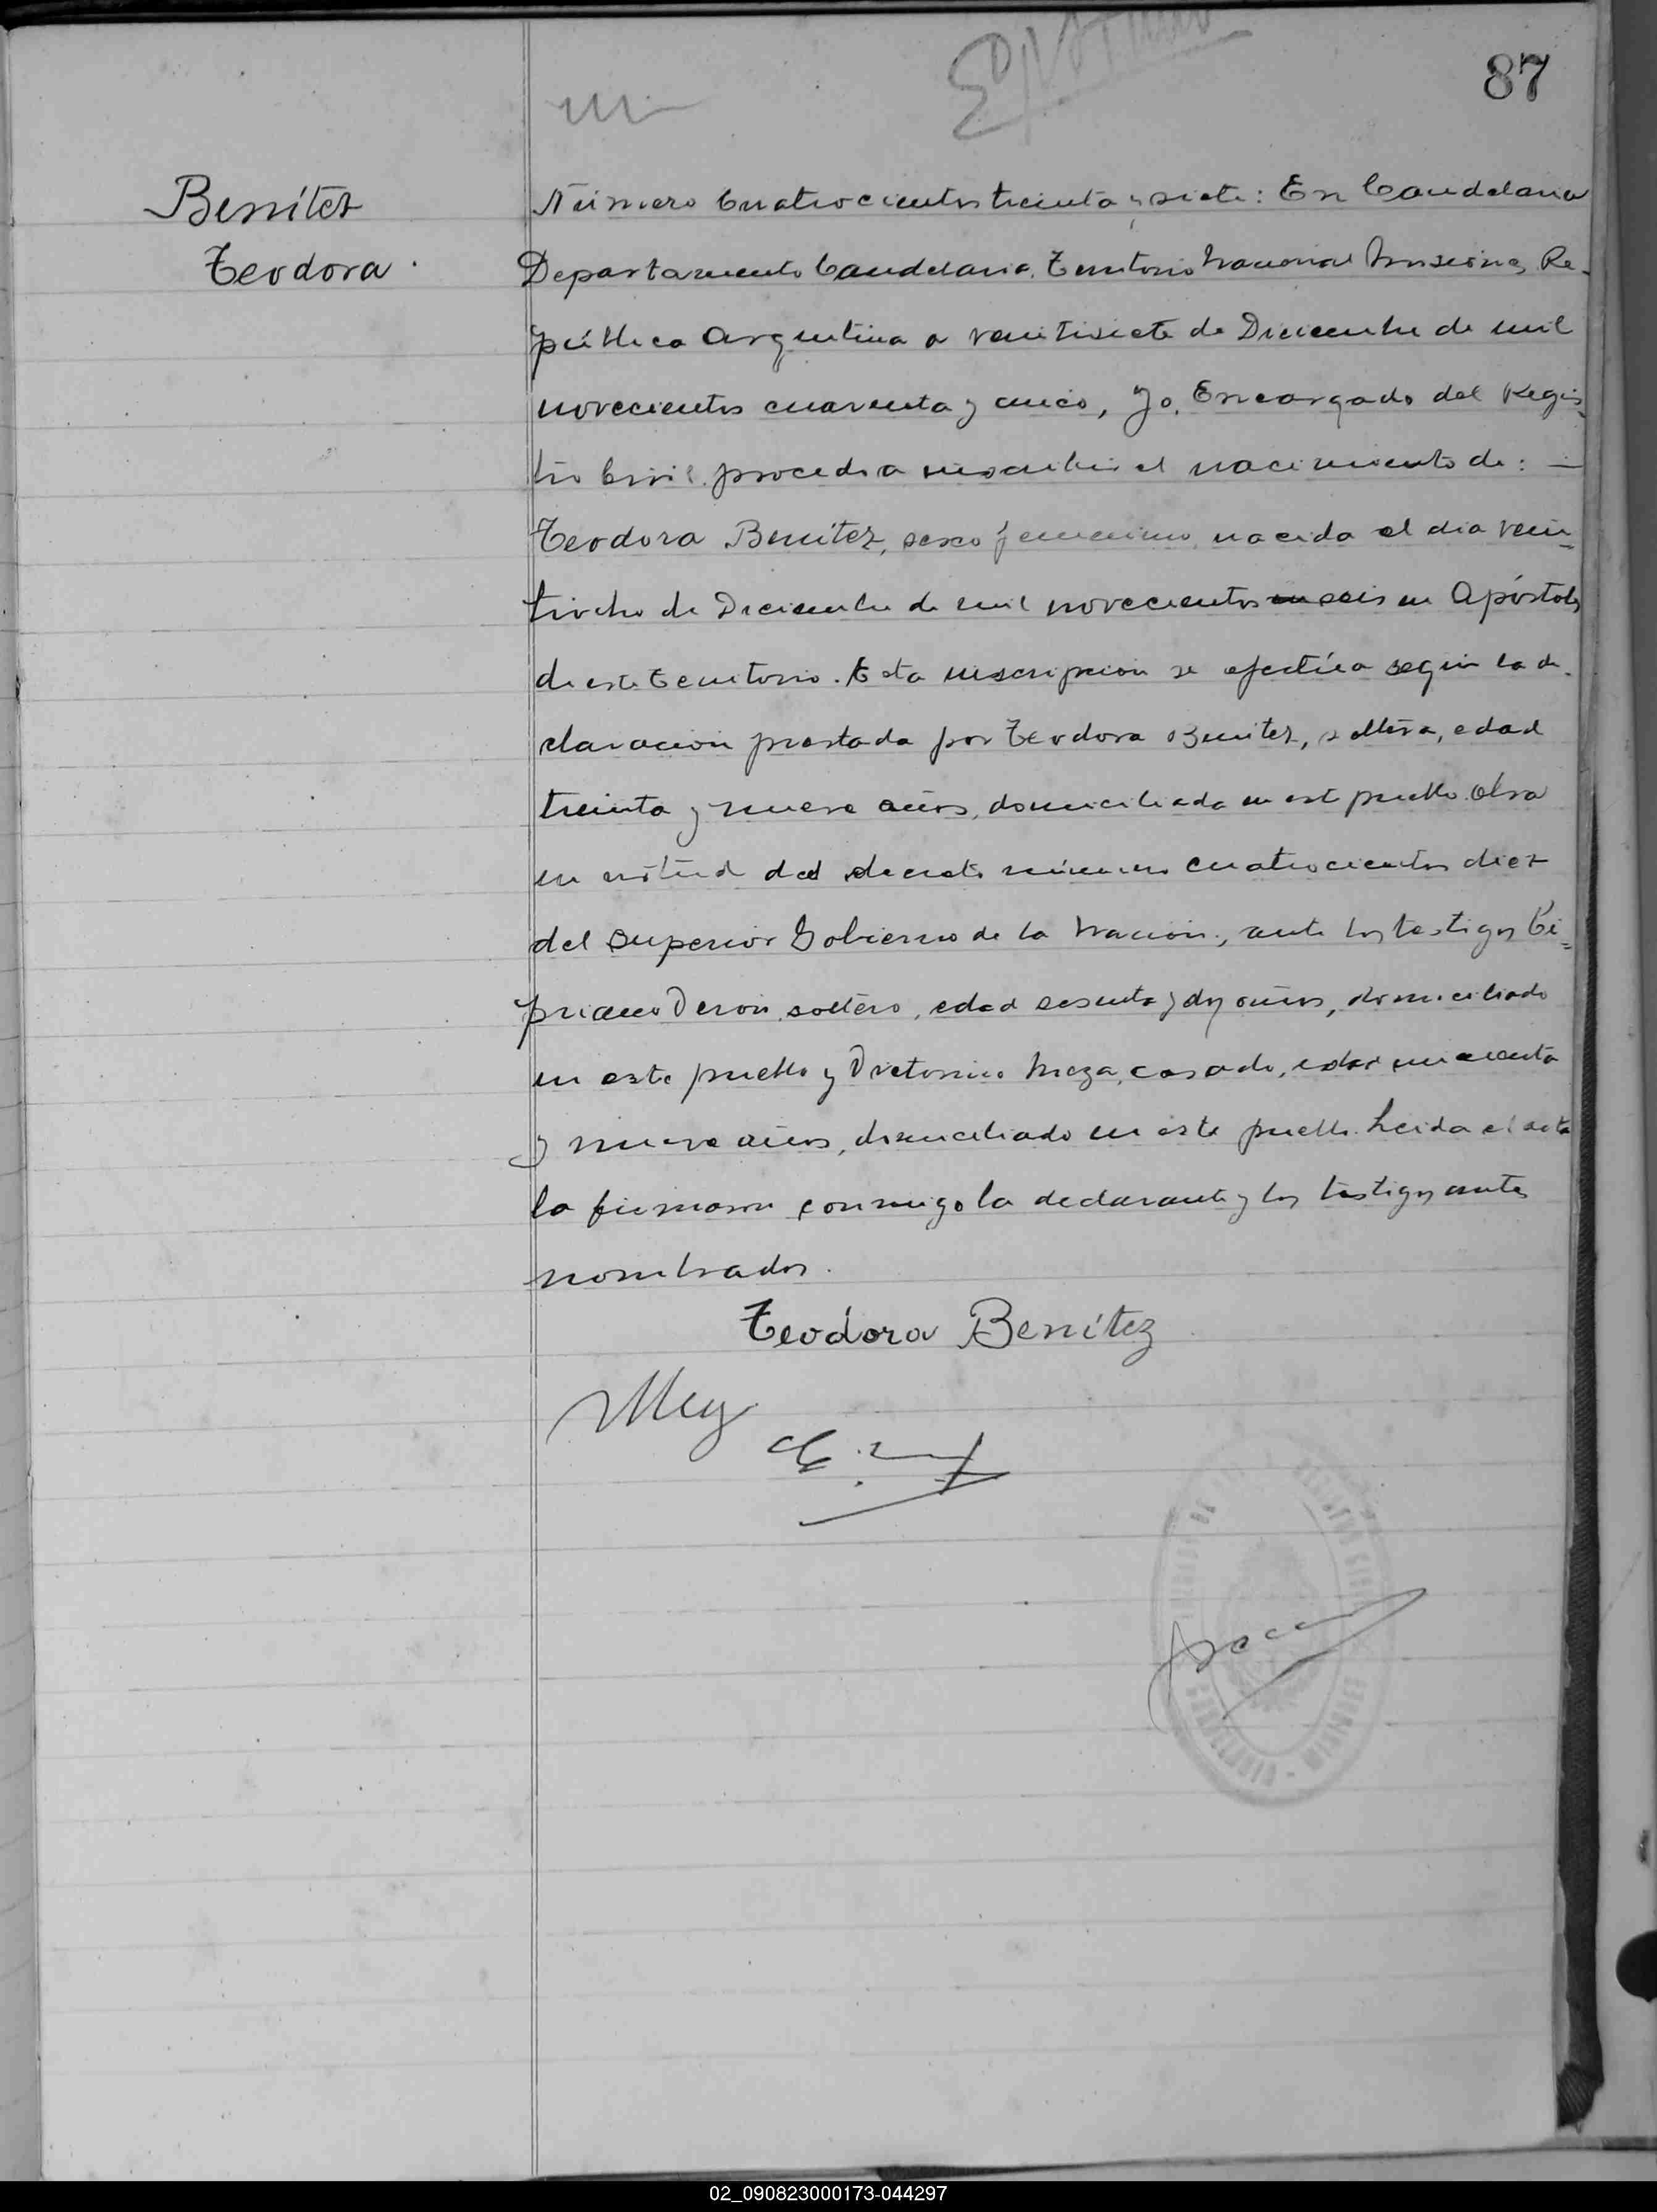 87
Benítez
Teodora.
Número Cuatrocientos treinta y siete: En Candelaria
Departamento Candelaria, Territorio Nacional Misiones, Re-
pública Argentina a veintisiete de Diciembre de mil
novecientos cuarenta y cinco, Yo, Encargado del Regis-
tro Civil procedo a inscribir el nacimiento de: —
Teodora Benítez, sexo femenino, nacida el día vein-
tiocho de Diciembre de mil novecientos seis en Apóstoles
de este Territorio. Esta inscripción se efectúa según la de-
claración prestada por Teodora Benitez, soltera, edad
treinta y nueve años, domiciliada en este pueblo. Obra
en virtud del decreto número cuatrocientos diez
del Superior Gobierno de la Nación, ante los testigos Ci=
priano Deron, soltero, edad sesenta y dos años, domiciliado
en este pueblo y Victorino Meza, casado, edad cincuenta
y nueve años, domiciliado en este pueblo. Leida el acta
la firmaron conmigo la declarante y los testigos antes
nombrados.
Teodora Benítez
REGISTRO CIVIL
CANDELARIA - MISIONES
02_090823000173-044297